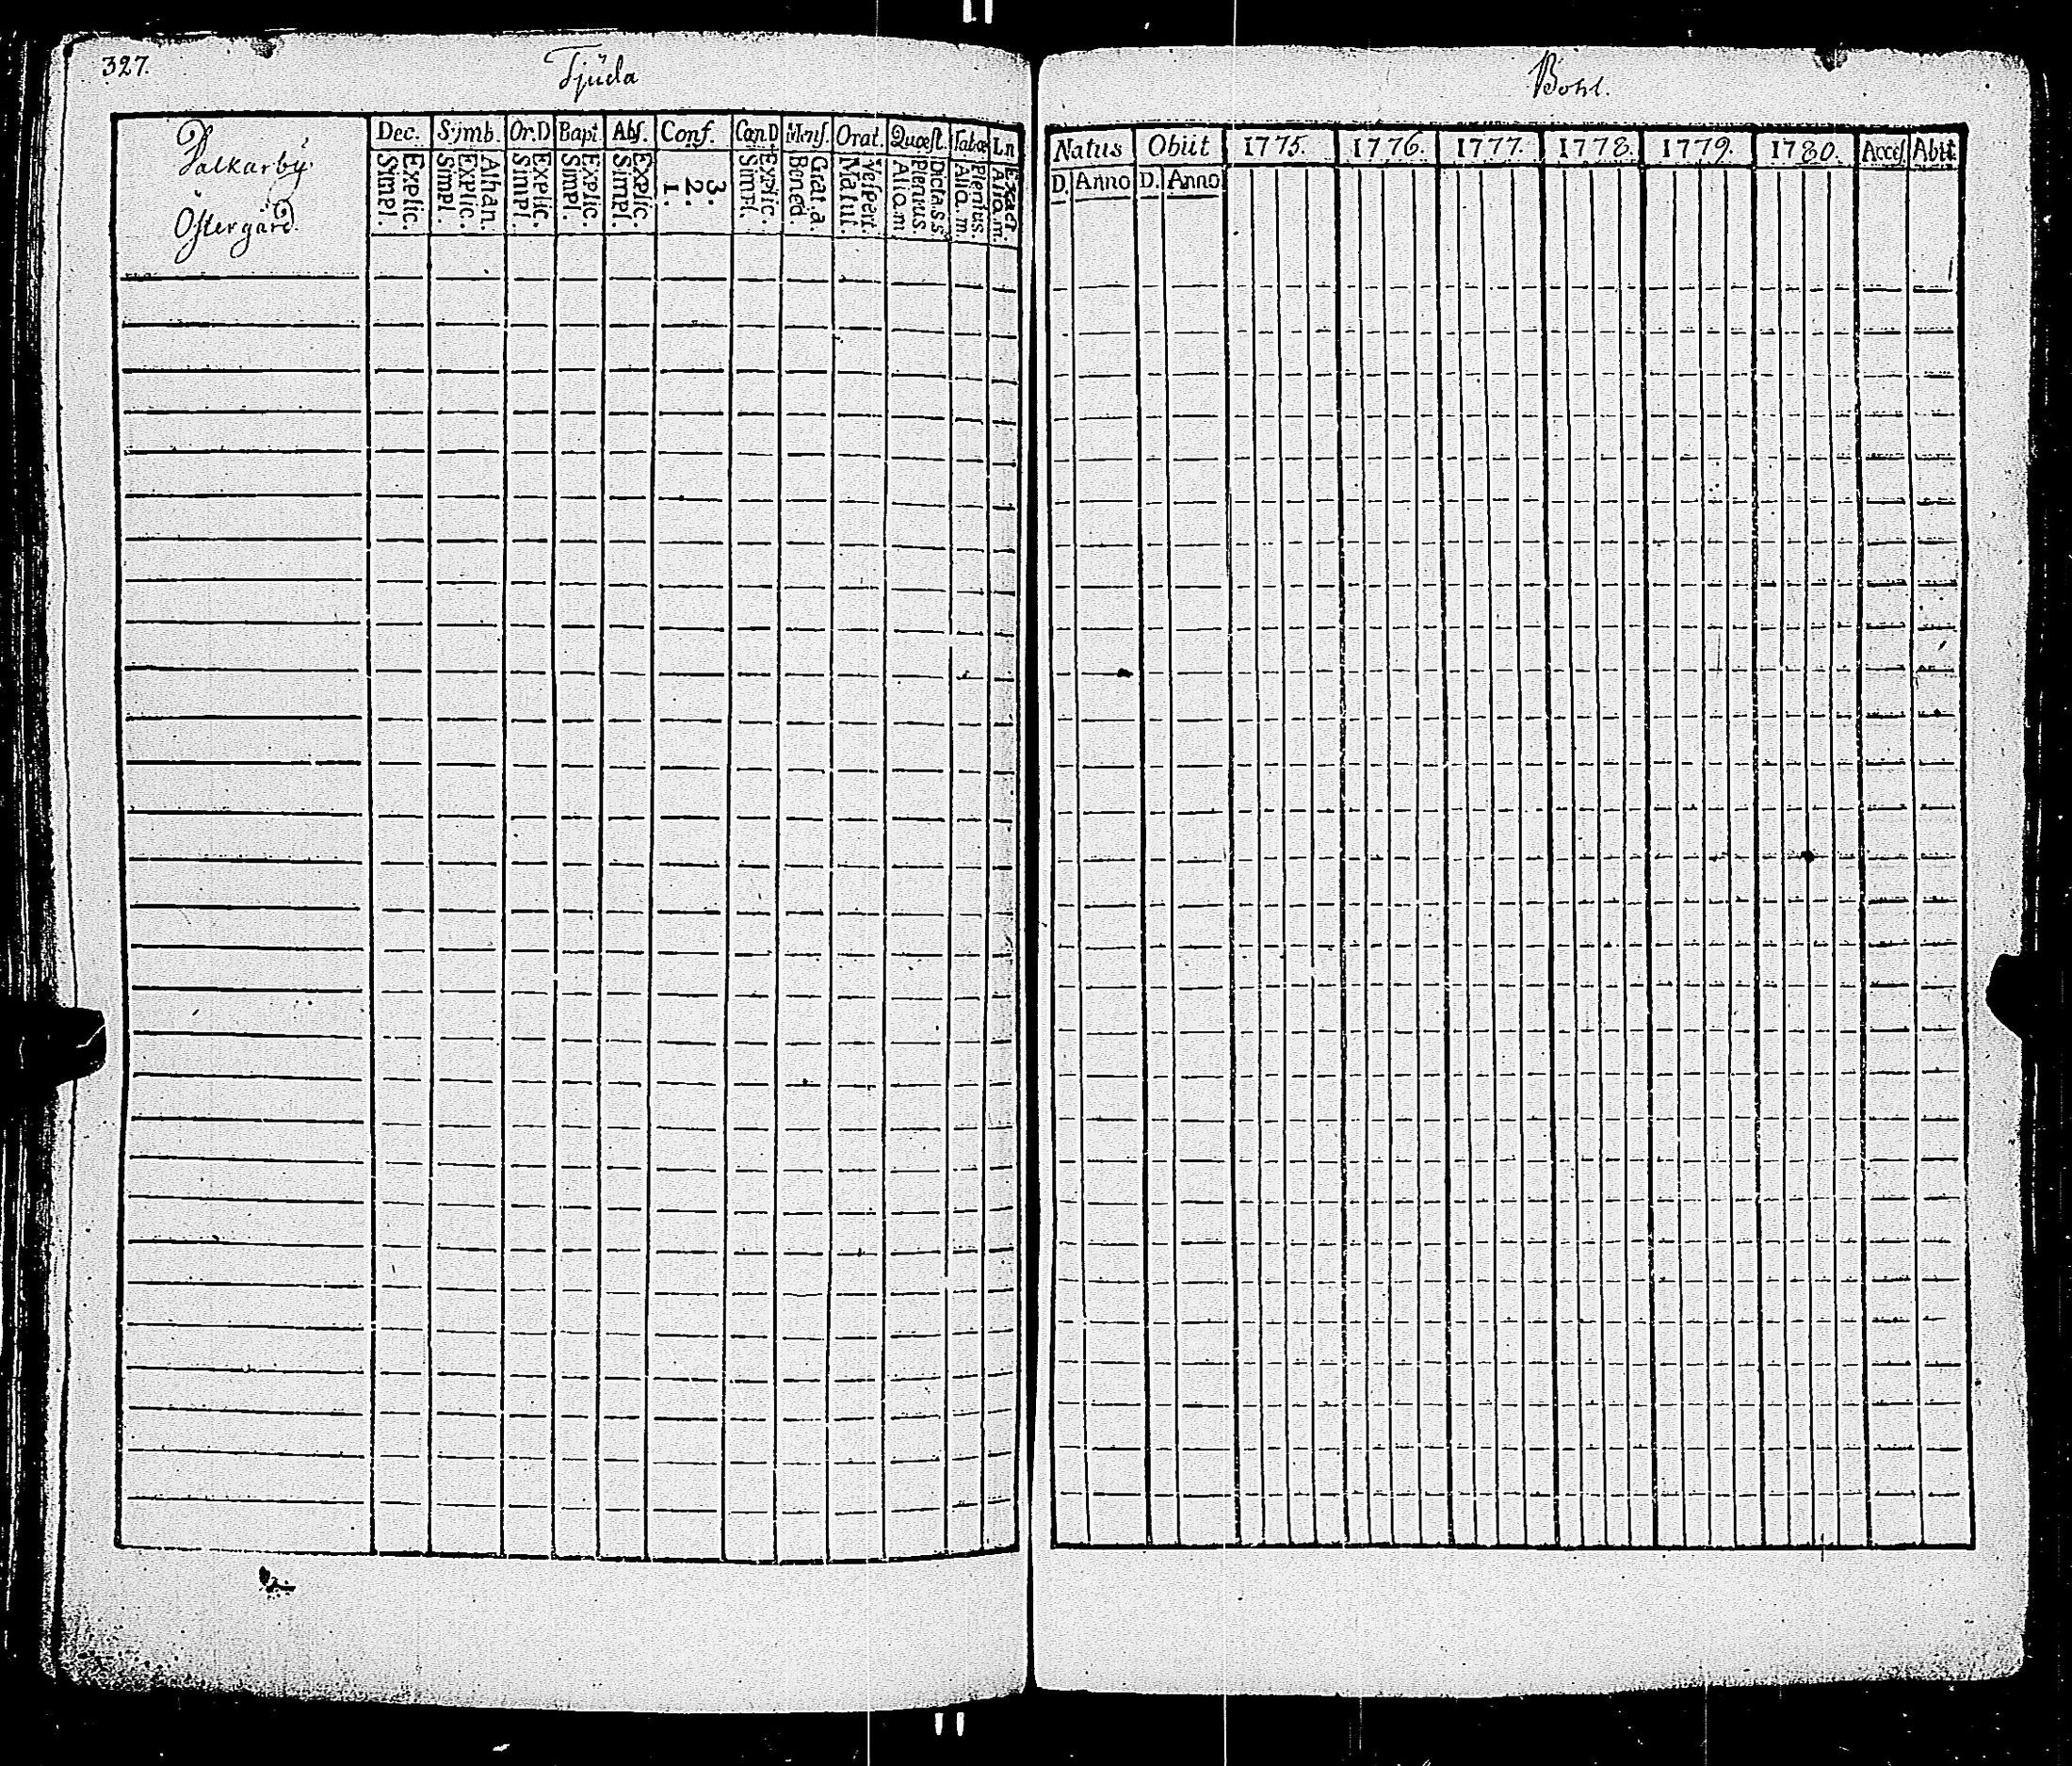 327.
Tjüda
Bohl.
Dalkarbÿ
Östergård.
Dec. Sÿmb. Or.D Bapt Abſ. Conf. Can D Menſ. Orat. Quæſt. Tabæ Ln
Explic. Simpl.
Athan. Explic. Simpl.
Explic. Simpl.
Explic. Simpl.
Explic. Simpl.
3. 2. 1.
Explic. Simpl.
Grat.a. Bened.
Veſpert. Matut.
Dicta.s.s. Plenius Alia.m
Plenius. Alia.m.
Exact. Alia.m.
Natus Obiit 1775. 1776. 1777. 1778. 1779. 1780. Acceſ. Abiit
D. Anno D. Anno